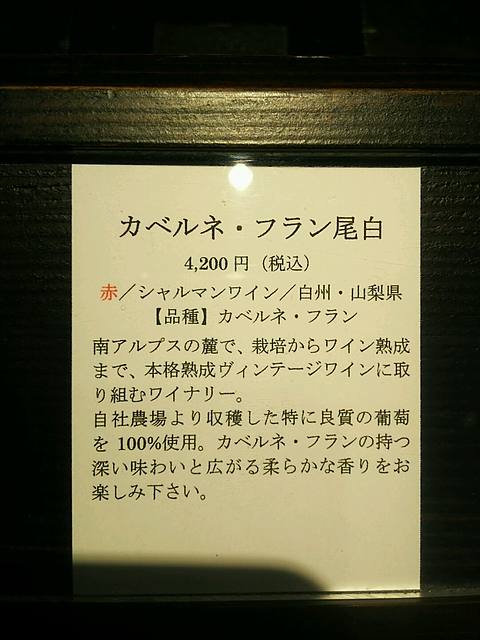 カベルネ・フラン尾白
4,200円（税込）
赤／シャルマンワイン／白州・山梨県
【品種】カベルネ・フラン
南アルプスの麓で、栽培からワイン熟成
まで、本格熟成ヴィンテージワインに取
り組むワイナリー。
自社農場より収穫した特に良質の葡萄
を 100%使用。カベルネ・フランの持つ
深い味わいと広がる柔らかな香りをお
楽しみ下さい。